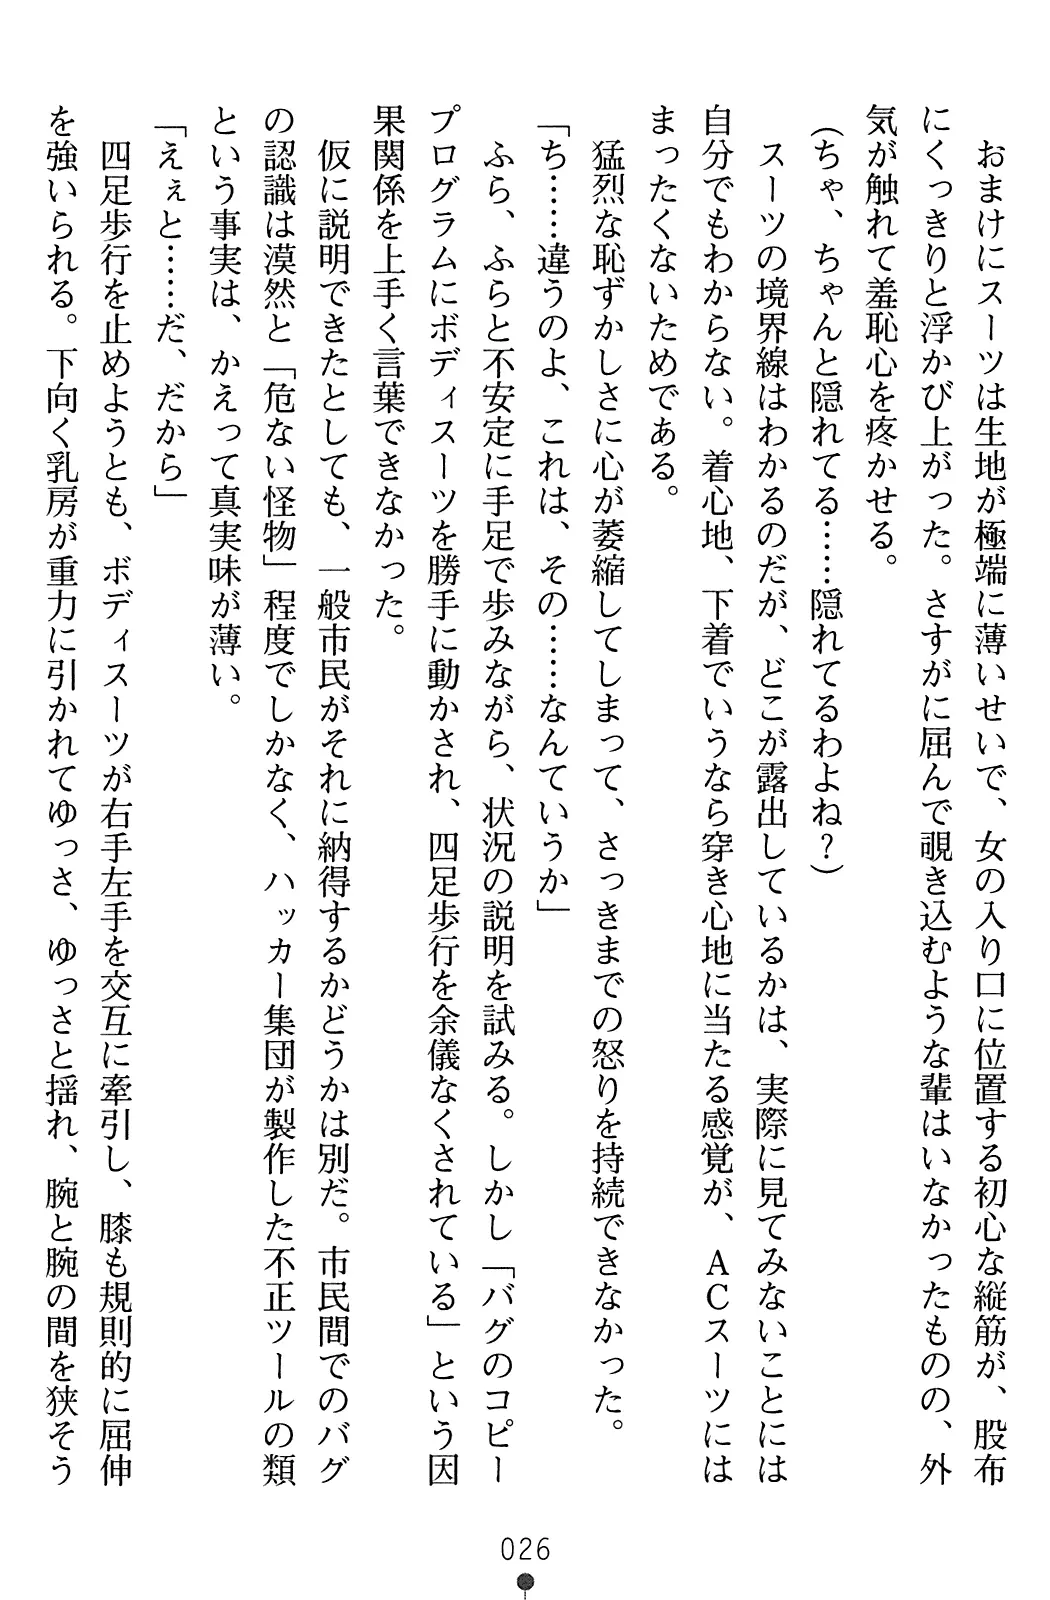 おまけにスーツは生地が極端に薄いせいで、女の入り口に位置する初心な縦筋が、股布
にくっきりと浮かび上がった。さすがに屈んで覗き込むような輩はいなかったものの、外
気が触れて羞恥心を疼かせる。
(ちゃ、ちゃんと隠れてる……隠れてるわよね？)
スーツの境界線はわかるのだが、どこが露出しているかは、実際に見てみないことには
自分でもわからない。着心地、下着でいうなら穿き心地に当たる感覚が、ＡＣスーツには
まったくないためである。
猛烈な恥ずかしさに心が萎縮してしまって、さっきまでの怒りを持続できなかった。
「ち……違うのよ、これは、その……なんていうか」
ふら、ふらと不安定に手足で歩みながら、状況の説明を試みる。しかし「バグのコピー
プログラムにボディスーツを勝手に動かされ、四足歩行を余儀なくされている」という因
果関係を上手く言葉できなかった。
仮に説明できたとしても、一般市民がそれに納得するかどうかは別だ。市民間でのバグ
の認識は漠然と「危ない怪物」程度でしかなく、ハッカー集団が製作した不正ツールの類
という事実は、かえって真実味が薄い。
「えぇと……だ、だから」
四足歩行を止めようとも、ボディスーツが右手左手を交互に牽引し、膝も規則的に屈伸
を強いられる。下向く乳房が重力に引かれてゆっさ、ゆっさと揺れ、腕と腕の間を狭そう
026